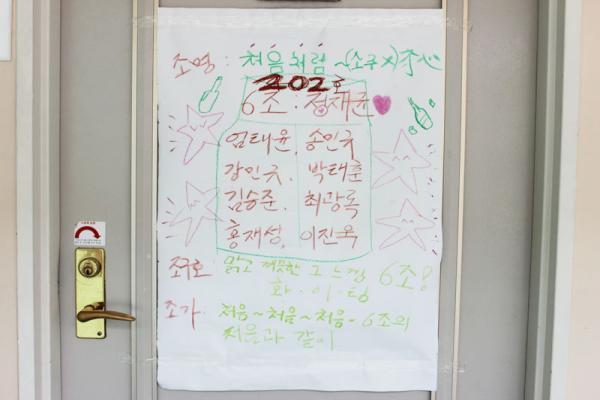 조명 : 처음처럼 ~(소주X)주心
202호
6조 : 정재균
엄태윤, 송인규
강인규, 박태훈
김승준, 최광록
홍재성, 이진욱
조구호 : 맑고 깨끗한 그 느낌 6조!
화·이·팅
조가 : 처음~처음~처음~ 6조의
처음과 같이